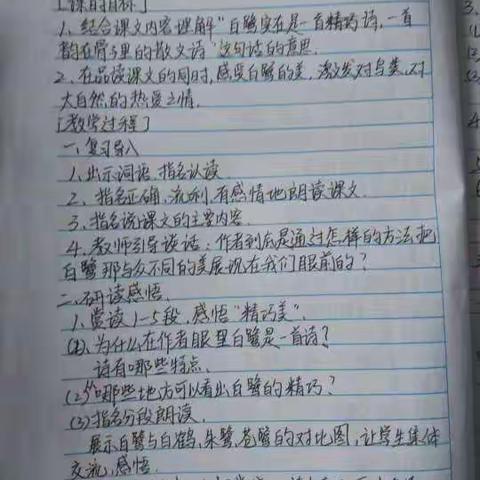 [课时目标]
1、结合课文内容理解“白鹭实在是一首精巧诗,一首
韵在骨子里的散文诗”这句话的意思.
2、在品读课文的同时,感受白鹭的美,激发对鸟类,对
大自然的热爱之情.
[教学过程]
一、复习导入
1、出示词语,指名认读.
2、指名正确、流利、有感情地朗读课文.
3、指名说课文的主要内容.
4、教师引导谈话:作者到底是通过怎样的方法,把
白鹭那与众不同的美展现在我们眼前的?
二、研读感悟.
1、赏读1-5段,感悟“精巧美”.
(1)、为什么在作者眼里白鹭是一首诗?
诗有哪些特点.
(2)哪些地方可以看出白鹭的精巧?
(3)指名分段朗读.
展示白鹭与白鹤,朱鹭,苍鹭的对比图,让学生集体
交流,感悟.